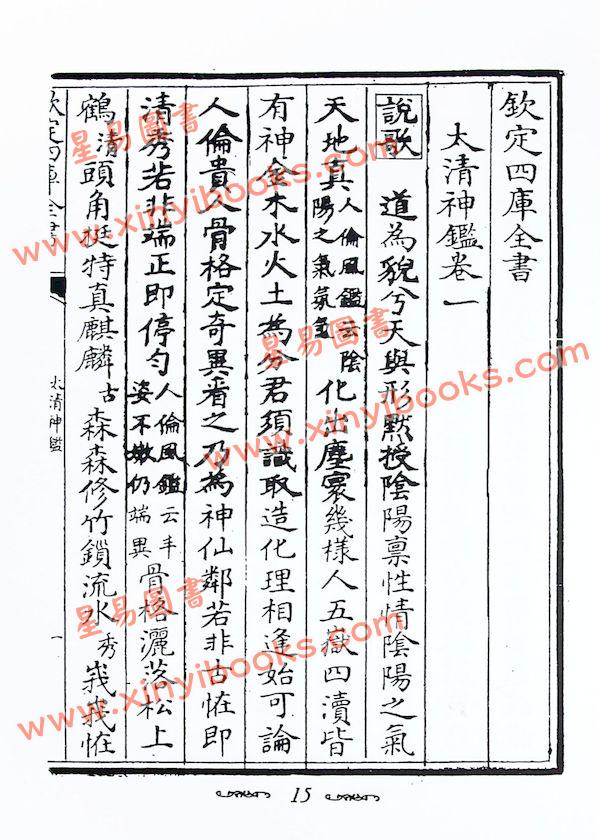 欽定四庫全書
太清神鑑卷一
說歌 道為貌兮天與形默授陰陽稟性情陰陽之氣
天地真人倫風鑑云陰陽之氣氛氳化出塵寰幾樣人五嶽四瀆皆
有神金木水火土為分君須識取造化理相逢始可論
人倫貴人骨格定奇異看之乃為神仙鄰若非古怪即
清秀若非端正即停勻人倫風鑑云丰姿不嫩仍端異骨格灑落松上
鶴清頭角挺特真麒麟古森森修竹鎖流水秀峩峩怪
欽定四庫全書
太清神鑑
一
15
星易圖書
www.xinyibooks.com
星易圖書
www.xinyibooks.com
星易圖書
www.xinyibooks.com